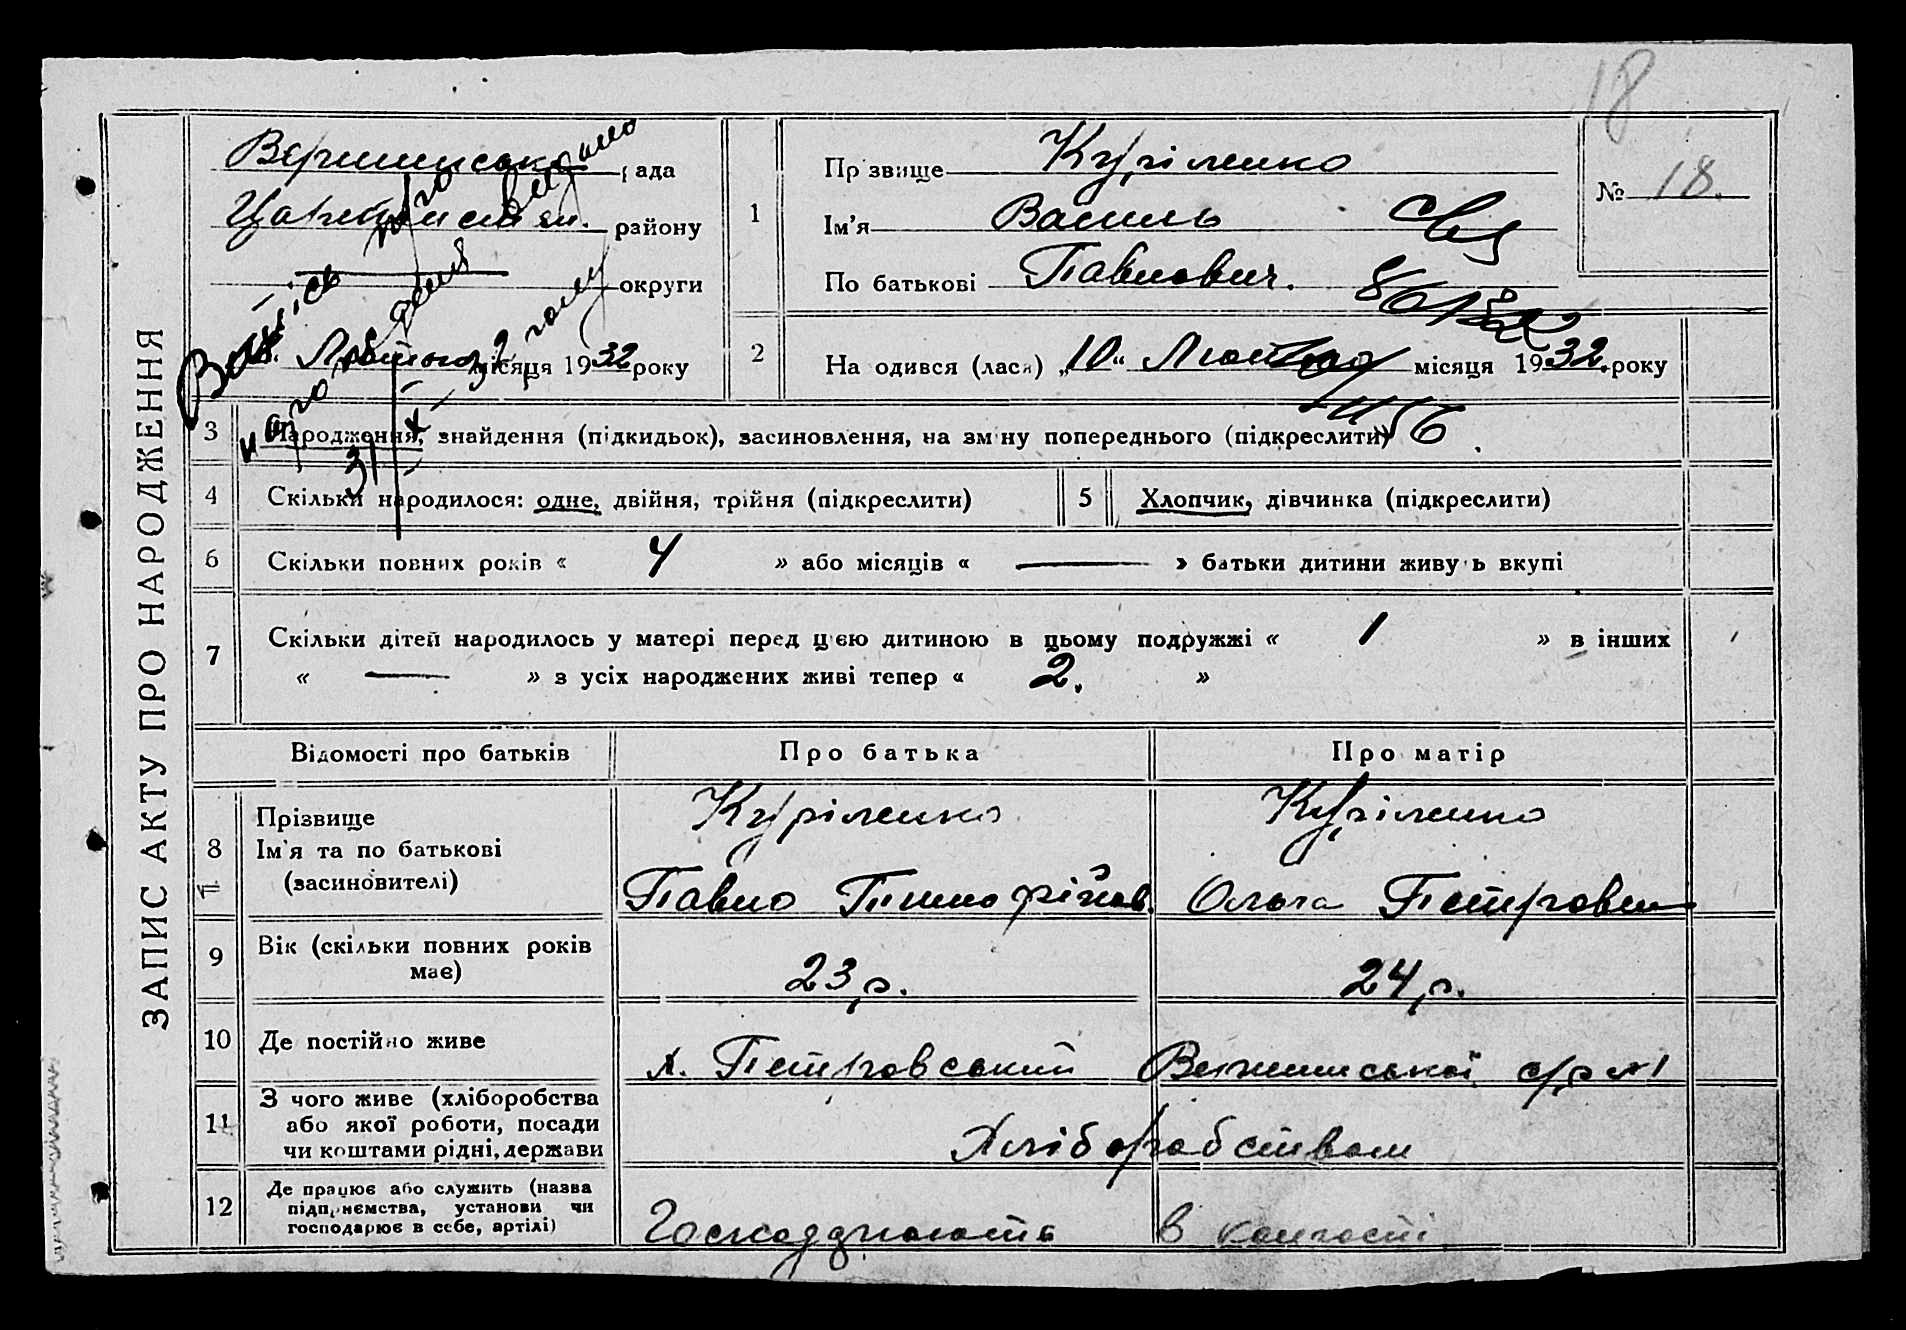 18
ЗАПИС АКТУ ПРО НАРОДЖЕННЯ
рада
району
округи
Лютого місяця 1932 року
1
Прізвище Куріленко
Ім'я Василь
По батькові Павлович.
№ 18.
2
На одився (лася) „10“ Лютого місяця 1932. року
3 Народження, знайдення (підкидьок), засиновлення, на зміну попереднього (підкреслити)
4 Скільки народилося: одне, двійня, трійня (підкреслити)
5 Хлопчик, дівчинка (підкреслити)
6 Скільки повних років « 4 » або місяців « — » батьки дитини живуть вкупі
7 Скільки дітей народилось у матері перед цією дитиною в цьому подружжі « 1 » в інших
« — » з усіх народжених живі тепер « 2. »
Відомості про батьків Про батька Про матір
8 Прізвище Куріленко Куріленко
Ім'я та по батькові
(засиновителі) Павло Ольга Петровн
9 Вік (скільки повних років
має) 23 р. 24 р.
10 Де постійно живе х. Петровський с/ради
11 З чого живе (хліборобства
або якої роботи, посади
чи коштами рідні, держави Хліборобством
12 Де працює або служить (назва
підприємства, установи чи
господарює в себе, артілі) в